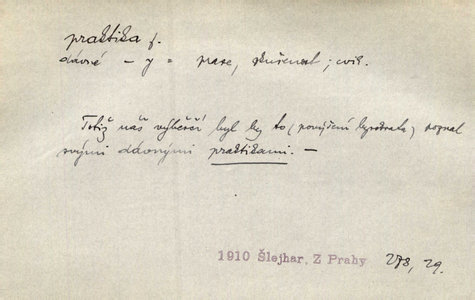 praktika f.
dávné – y = praxe, zkušenost; cvik.
Totiž náš výběrčí byl by to (povýšení hyrdnula) poznal
svými dávnými praktikami. –
1910 Šlejhar, Z Prahy 278, 29.